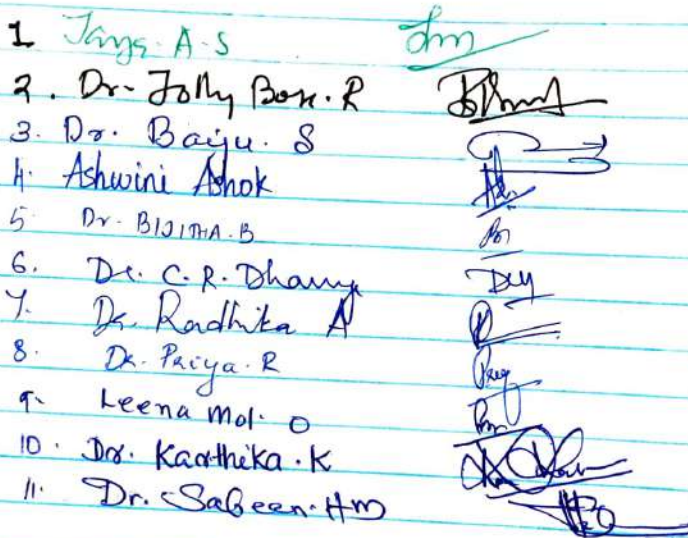 1 Jaya. A. S
2. Dr. Jolly Bose. R
3. Dr. Baiju. S
4. Ashwini Ashok
5. Dr. BIJITHA. B
6. Dr. C. R. Dhanya
7. Dr. Radhika A
8. Dr. Priya. R
9. Leena Mol. O
10. Dr. Karthika. K
11. Dr. Sabeen. HM